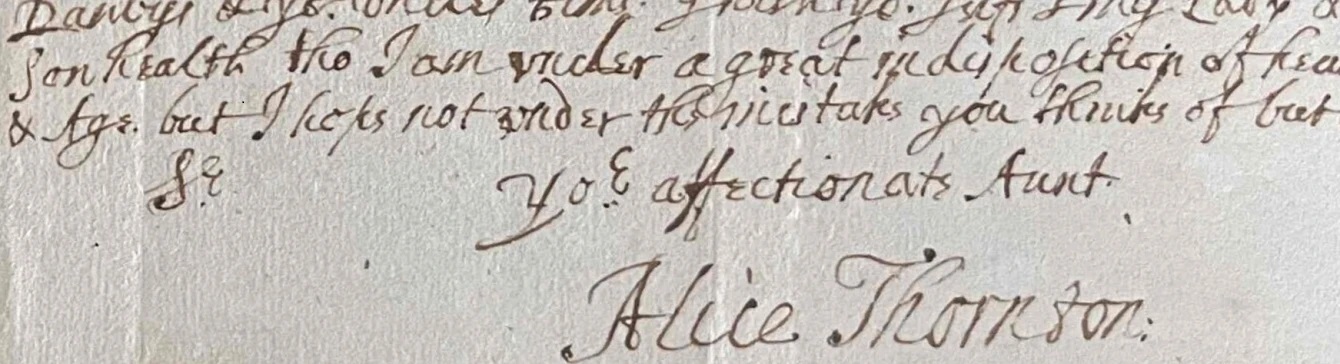 son health tho I am vnder a great indisposition of hea
& Age. but I hope not vnder the mistake you thinks of but
Sr
Yor affectionate Aunt.
Alice Thornton.